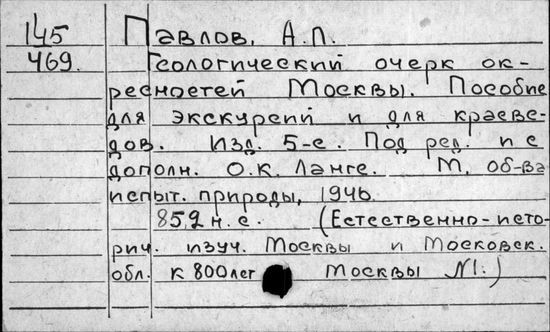 145 Павлов, А.П.
469. Геологический очерк ок-
рестностей Москвы. Пособие
для экскурсий и для краеве-
дов. Изд. 5-е. Под ред. и с
дополн. О.К. Ланге. М. об-ва
испыт. природы, 1946.
Н.с. (Естественно-исто-
рич. изуч. Москвы и Московск.
обл. к 800лет Москвы №1.)